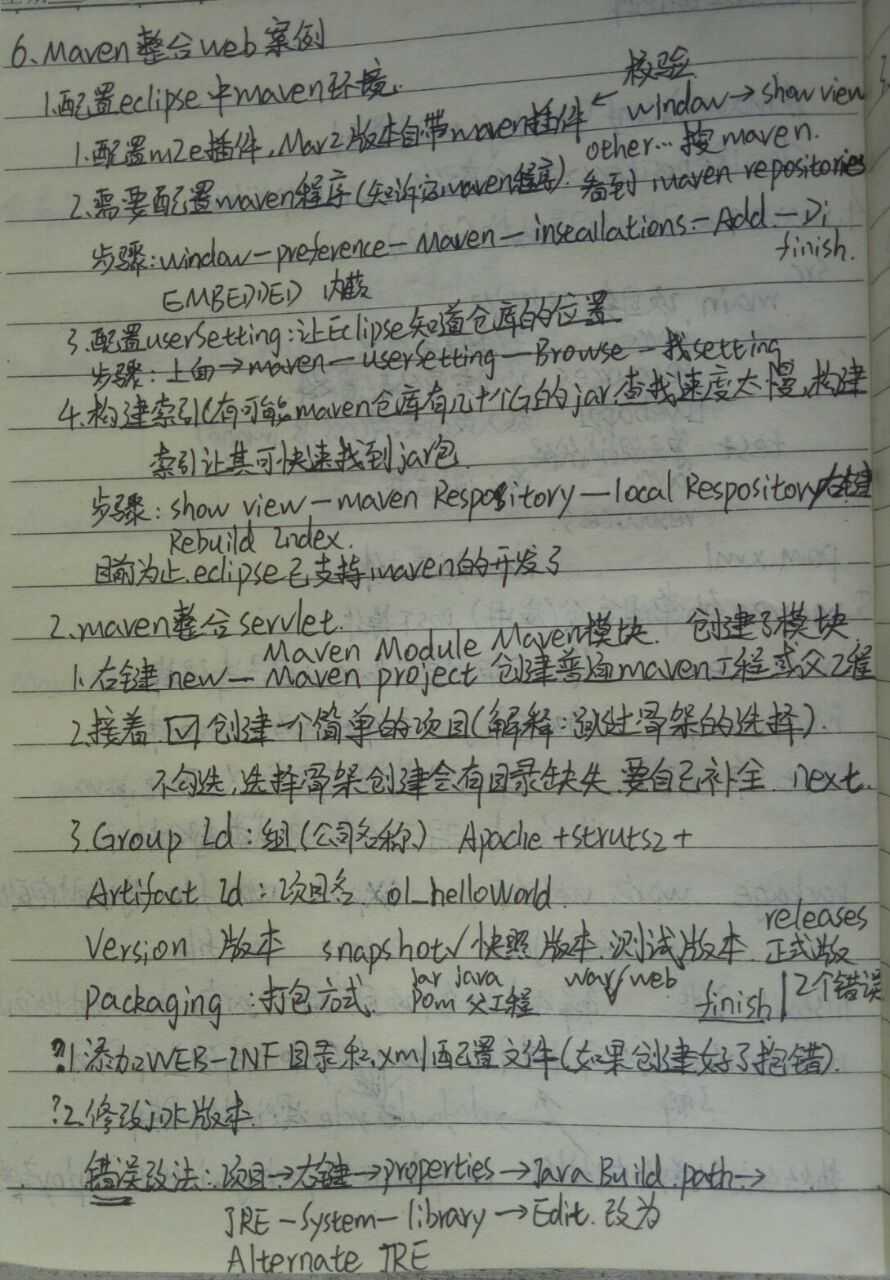 6、Maven整合web案例
1.配置eclipse中maven环境.
1.配置m2e插件,Mar2版本自带maven插件 ← 校验 window→show view
other… 搜maven.
2.需要配置maven程序(知诉它maven程序). 看到maven repositories
步骤:window—preference—Maven—inseallations—Add—Di
finish.
EMBEDDED 内嵌
3.配置userSetting:让Eclipse知道仓库的位置
步骤:上面→maven—userSetting—Browse—找setting
4.构建索引(有可能maven仓库有几十个G的jar查找速度太慢,构建
索引让其可快速找到jar包.
步骤:show view—maven Respository—local Respository右键
Rebuild Index.
目前为止,eclipse已支持maven的开发了
2.maven整合servlet.
Maven Module Maven模块. 创建子模块
1.右键new—Maven project 创建普通maven工程或父工程
2.接着 ☑创建一个简单的项目(解释:跳过骨架的选择).
不勾选,选择骨架创建会有目录缺失 要自己补全. next.
3.Group Id:组(公司名称) Apache +struts2+
Artifact Id:项目名 01_helloWorld
Version 版本 snapshot√快照版本.测试版本. releases 正式版
Packaging:打包方式. jar java war/web
pom 父工程 finish | 2个错误
?1添加WEB-INF目录和xml配置文件(如果创建好了报错).
?2.修改jdk版本.
错误改法:项目→右键→properties→Java Build path→
JRE—System—library→Edit.改为
Alternate JRE